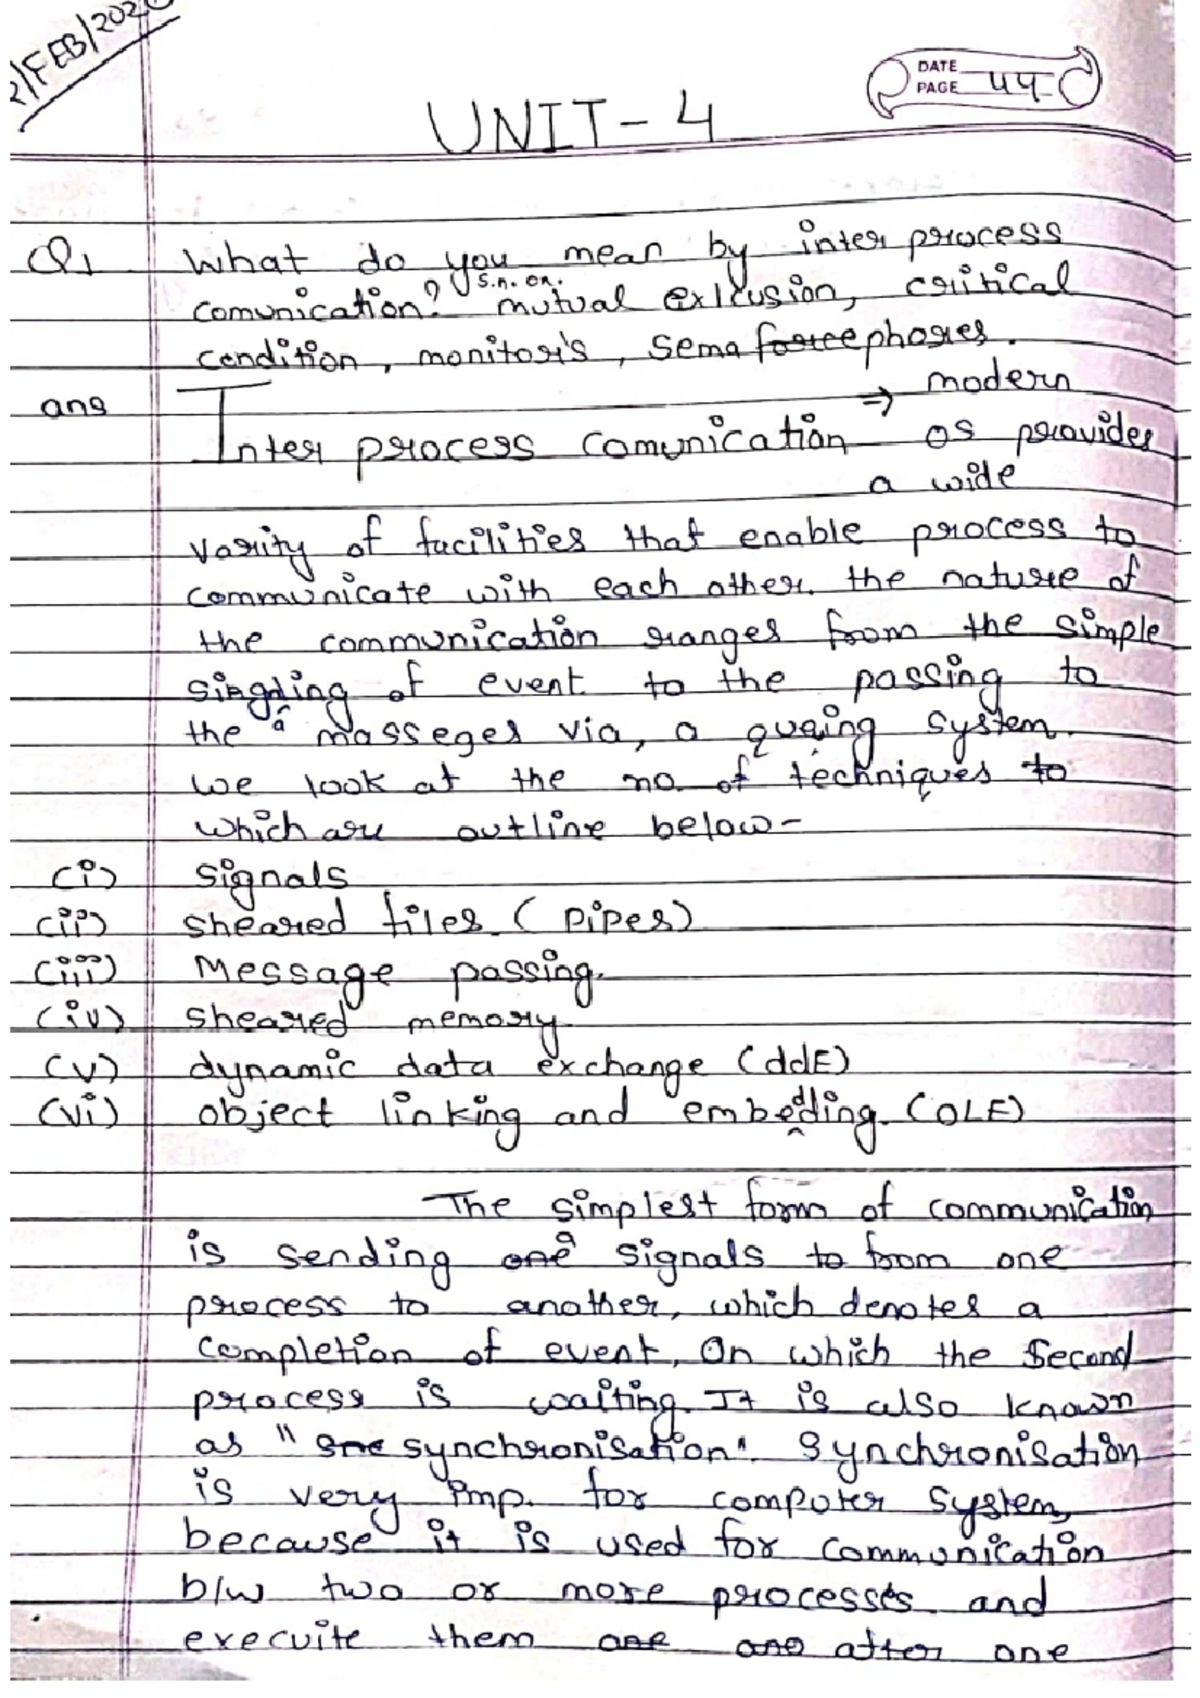 /FEB/202
DATE
PAGE 44
UNIT-4
Q1 What do you mean by inter process
comunication? s.n. on. mutual exlcusion, critical
condition, monitor's, Semaforcephores.
ans Inter process comunication ⇒ modern
os provides
a wide
varity of facilities that enable process to
communicate with each other. the nature of
the communication ranges from the simple
of event to the passing to
the a masseges via, a queing system.
we look at the no. of techniques to
which are outline below-
(i) signals
(ii) sheared files. (pipes)
(iii) Message passing.
(iv) sheared memory.
(v) dynamic data exchange (ddE)
(vi) object linking and embedding. (OLE)
The simplest form of communication
is sending one a signals to from one
process to another, which denotes a
completion of event, On which the second
process is waiting. It is also known
as "sne synchronisation". Synchronisation
is very imp. for computer system,
because it is used for communication
b/w two or more processes and
execuite them one one after one